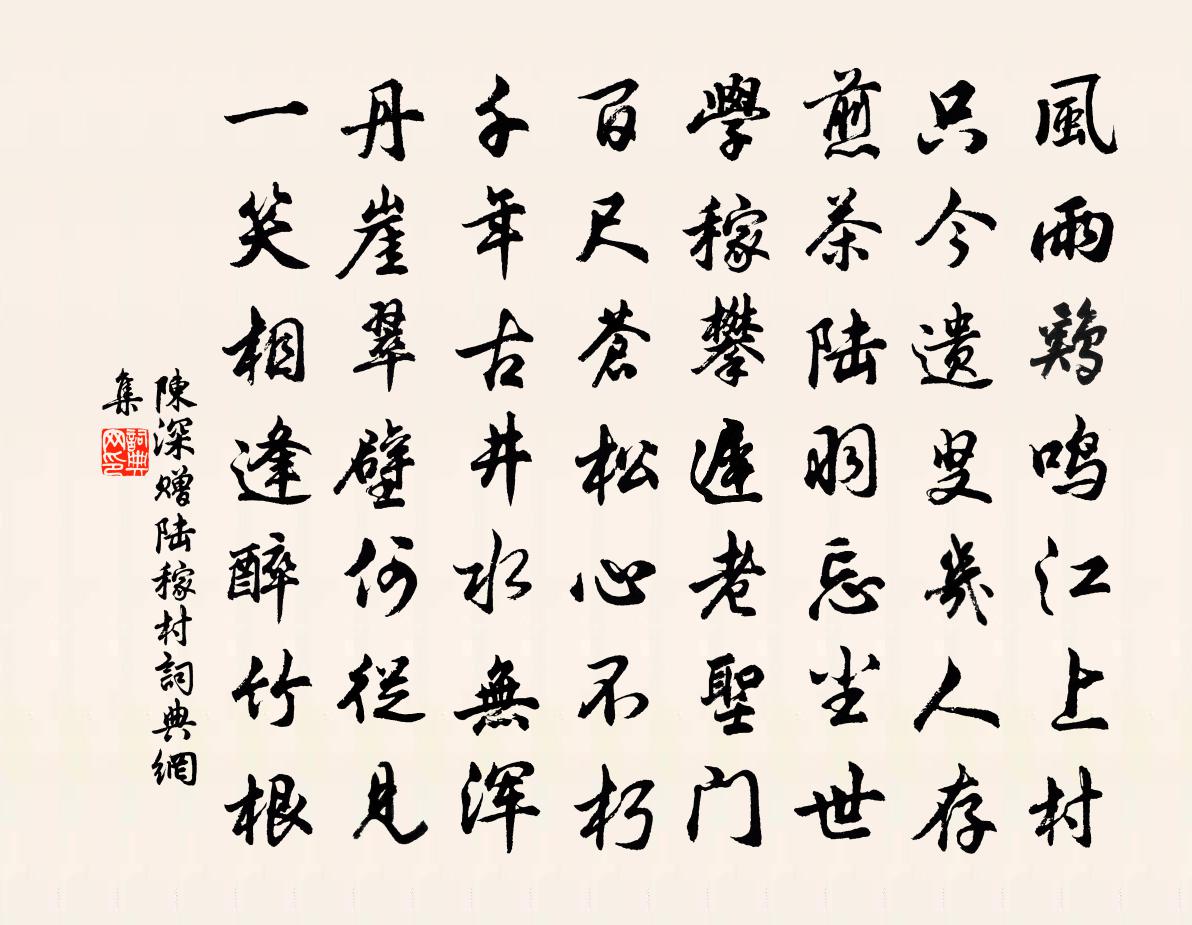 風雨鷄鳴江上村
只今遺叟幾人存
煎茶陆羽忘尘世
學稼攀遲老聖门
百尺蒼松心不朽
千年古井水無渾
丹崖翠壁何從見
一笑相逢醉竹根
陳深贈陆稼村詞典網
集
詞典网印